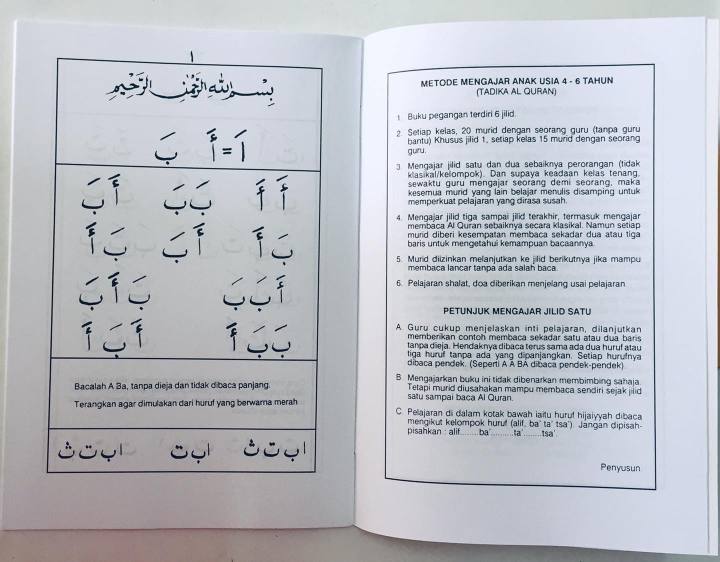 ١
بِسْمِ اللهِ الرَّحْمٰنِ الرَّحِيْمِ
اَ = أَ بَ
أَ أَ بَ بَ أَ بَ
بَ أَ أَ بَ بَ أَ
أَ بَ بَ بَ أَ بَ
بَ بَ أَ أَ بَ أَ
Bacalah A Ba, tanpa dieja dan tidak dibaca panjang.
Terangkan agar dimulakan dari huruf yang berwarna merah
ا ب ت ث ا ب ت ا ب ت ث
METODE MENGAJAR ANAK USIA 4 - 6 TAHUN
(TADIKA AL QURAN)
1. Buku pegangan terdiri 6 jilid.
2. Setiap kelas, 20 murid dengan seorang guru (tanpa guru
bantu) Khusus jilid 1, setiap kelas 15 murid dengan seorang
guru.
3. Mengajar jilid satu dan dua sebaiknya perorangan (tidak
klasikal/kelompok). Dan supaya keadaan kelas tenang,
sewaktu guru mengajar seorang demi seorang, maka
kesemua murid yang lain belajar menulis disamping untuk
memperkuat pelajaran yang dirasa susah.
4. Mengajar jilid tiga sampai jilid terakhir, termasuk mengajar
membaca Al Quran sebaiknya secara klasikal. Namun setiap
murid diberi kesempatan membaca sekadar dua atau tiga
baris untuk mengetahui kemampuan bacaannya.
5. Murid diizinkan melanjutkan ke jilid berikutnya jika mampu
membaca lancar tanpa ada salah baca.
6. Pelajaran shalat, doa diberikan menjelang usai pelajaran.
PETUNJUK MENGAJAR JILID SATU
A. Guru cukup menjelaskan inti pelajaran, dilanjutkan
memberikan contoh membaca sekadar satu atau dua baris
tanpa dieja. Hendaknya dibaca terus sama ada dua huruf atau
tiga huruf tanpa ada yang dipanjangkan. Setiap hurufnya
dibaca pendek. (Seperti A A BA dibaca pendek-pendek).
B. Mengajarkan buku ini tidak dibenarkan membimbing sahaja.
Tetapi murid diusahakan mampu membaca sendiri sejak jilid
satu sampai baca Al Quran.
C. Pelajaran di dalam kotak bawah iaitu huruf hijaiyyah dibaca
mengikut kelompok huruf (alif, ba' ta' tsa'). Jangan dipisah-
pisahkan : alif........ba'..........ta'........tsa'.
Penyusun